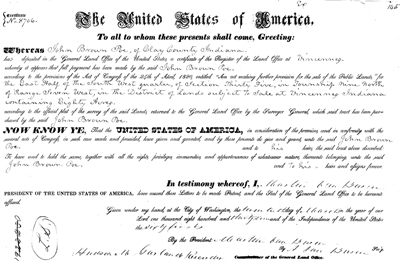 The United States of America,
CERTIFICATE
No. 8706
To all to whom these presents shall come, Greeting:
WHEREAS John Brown Poe, of Clay County, Indiana,
has deposited in the General Land Office of the United States a certificate of the Register of the Land Office at Vincennes
whereby it appears that full payment has been made by the said John Brown Poe,
according to the provisions of the Act of Congress of the 24th of April, 1820, entitled "An act making further provision for the sale of the Public Lands," for
the East Half of the South West quarter, of Section Thirty Five, in Township Nine North
of Range Seven West, in the District of Lands subject to Sale at Vincennes Indiana
containing Eighty Acres,
according to the official plat of the survey of the said Lands, returned to the General Land Office by the Surveyor General, which said tract has been purchased by the said John Brown Poe.
NOW KNOW YE, That the UNITED STATES OF AMERICA, in consideration of the premises and in conformity with the several acts of Congress, in such case made and provided, have given and granted, and by these presents do give and grant, unto the said John Brown Poe
and to his heirs, the said tract above described:
To have and to hold the same, together with all the rights, privileges, immunities and appurtenances of whatsoever nature, thereunto belonging, unto the said
John Brown Poe, and to his heirs and assigns forever.
In testimony whereof, I, Martin Van Buren
PRESIDENT OF THE UNITED STATES OF AMERICA, have caused these Letters to be made Patent, and the Seal of the General Land Office to be hereunto affixed.
Given under my hand, at the City of Washington, the day of in the year of our Lord one thousand eight hundred and and of the Independence of the United States the sixty
By the President: Martin Van Buren
By Van Buren Sec'y
of the General Land Office.